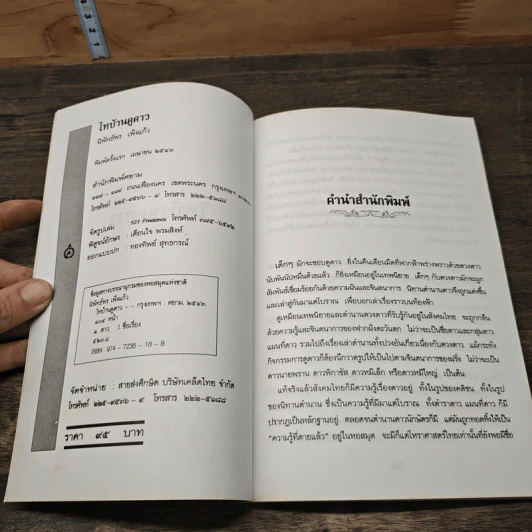 ไทบ้านดูดาว
นิพัทธ์พร เพ็งแก้ว
พิมพ์ครั้งแรก เมษายน ๒๕๔๓
สำนักพิมพ์ศยาม
๑๑๗ - ๑๑๙ ถนนเฟื่องนคร เขตพระนคร กรุงเทพฯ
โทรศัพท์ ๒๒๕-๙๕๓๖ - ๙ โทรสาร ๒๒๒-๕๑๘๘
จัดรูปเล่ม : 101 Freelance โทรศัพท์
พิสูจน์อักษร : เตือนใจ พรมสิงห์
ออกแบบปก : ทองทิพย์ สุทธารณ์
ข้อมูลทางบรรณานุกรมของหอสมุดแห่งชาติ
นิพัทธ์พร เพ็งแก้ว
ไทบ้านดูดาว - - กรุงเทพฯ : ศยาม, ๒๕๔๓.
๑๐๔ หน้า
๑. ดาว I. ชื่อเรื่อง
ISBN 974 - 7236 - 18 - 8
จัดจำหน่าย : สายส่งศึกษิต บริษัทเคล็ดไทย จำกัด
โทรศัพท์ ๒๒๕-๙๕๓๖ - ๙ โทรสาร ๒๒๒-๕๑๘๘
ราคา ๙๕ บาท
คำนำสำนักพิมพ์
เด็กๆ มักจะชอบดูดาว ยิ่งในคืนเดือนมืดที่ฟากฟ้าพร่างพราวด้วยดวงดาว
นับพันนับหมื่นด้วยแล้ว ก็ยิ่งเหมือนอยู่ในเทพนิยาย เด็กๆ กับดวงดาวมักจะผูก
สัมพันธ์เชื่อมร้อยกันด้วยความฝันและจินตนาการ นิทานตำนานดาวจึงถูกแต่งขึ้น
และเล่าสู่กันมาแต่โบราณ เพื่อบอกเล่าเรื่องราวบนท้องฟ้า
ดูเหมือนเทพนิยายและตำนานดวงดาวที่รับรู้กันอยู่ในสังคมไทย จะถูกกลืน
ด้วยความรู้และจินตนาการของฟากฝั่งตะวันตก ไม่ว่าจะเป็นชื่อดาวและกลุ่มดาว
แผนที่ดาว รวมไปถึงเรื่องเล่าตำนานทั้งปวงอันเกี่ยวเนื่องกับดวงดาว แม้กระทั่ง
กิจกรรมการดูดาวก็ต้องนึกวาดรูปให้เป็นไปตามจินตนาการของฝรั่ง ไม่ว่าจะเป็น
ดาวนายพราน ดาวพิณารัส ดาวหมีเล็ก หรือดาวหมีใหญ่ เป็นต้น
แท้จริงแล้วสังคมไทยก็มีความรู้เรื่องดาวอยู่ ทั้งในรูปของคติชน ทั้งในรูป
ของนิทานตำนาน ซึ่งเป็นความรู้ที่มีมาแต่โบราณ ทั้งตำราดาว แผนที่ดาว ก็มี
ปรากฏเป็นหลักฐานอยู่ ตลอดจนตำนานดาวนักษัตรก็มี แต่มันถูกทอดทิ้งให้เป็น
“ความรู้ที่ตายแล้ว” อยู่ในหอสมุด จะมีก็แต่โหราศาสตร์ไทยเท่านั้นที่ยังพอมีชื่อ